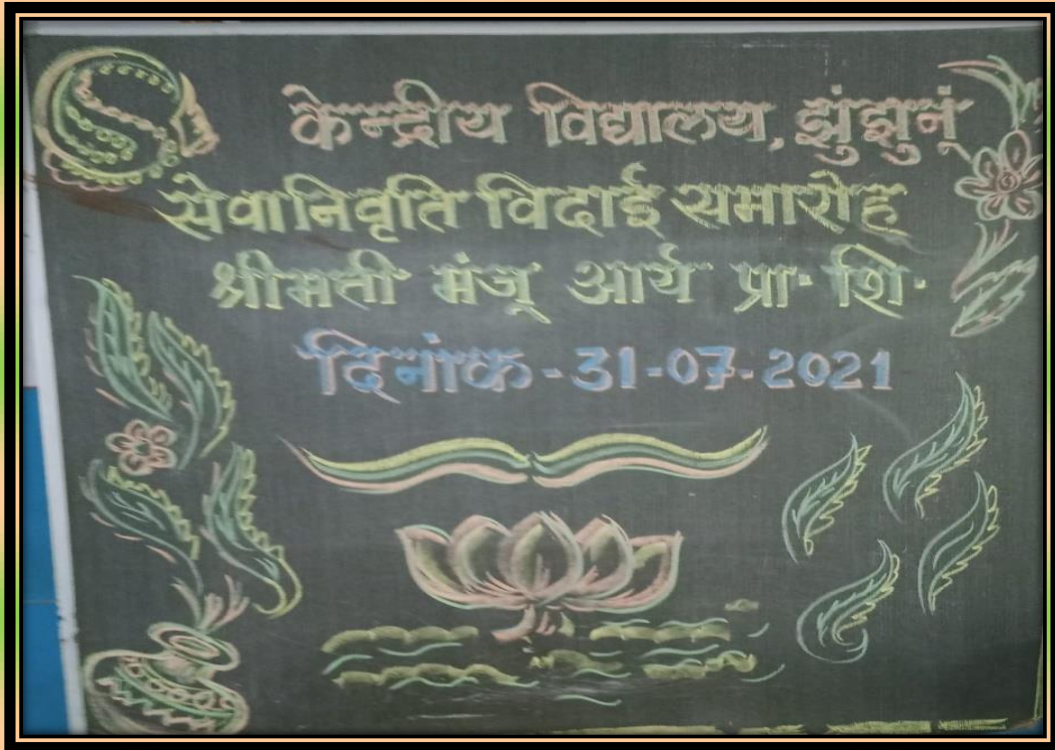 केन्द्रीय विद्यालय, झुंझुनूं
सेवानिवृति विदाई समारोह
श्रीमती मंजू आर्य प्रा॰ शि॰
दिनांक - 31-07-2021